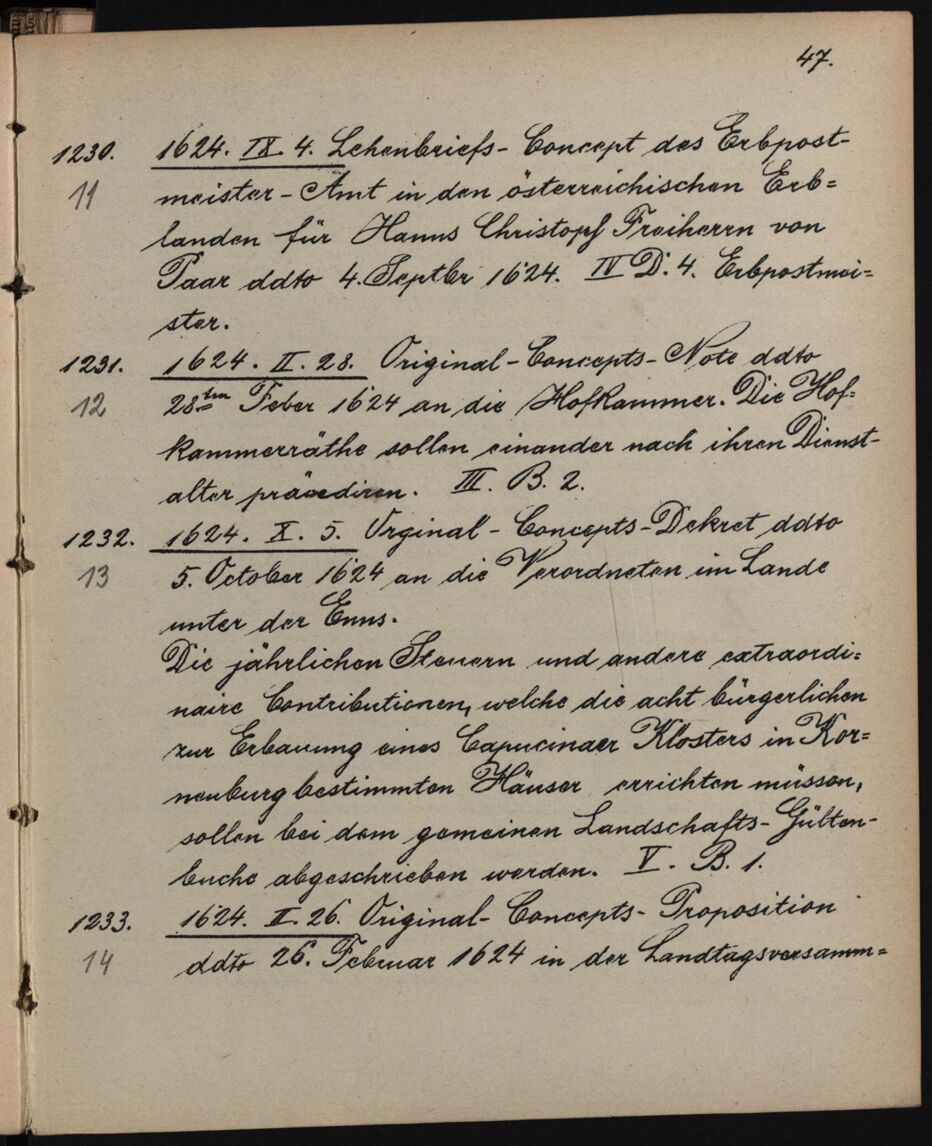 47.
1230. 1624. IX. 4. Lehenbriefs-Concept des Erbpost-
11 meister-Amt in den österreichischen Erb=
landen für Hanns Christoph Freiherrn von
Paar ddto 4. Septbr 1624. IV D. 4. Erbpostmei=
ster.
1231. 1624. II. 28. Original-Concepts-Note ddto
12 28ten Feber 1624 an die Hofkammer. Die Hof=
kammerräthe sollen einander nach ihren Dienst-
alter präcediren. III. B. 2.
1232. 1624. X. 5. Orginal-Concepts-Dekret ddto
13 5. October 1624 an die Verordneten im Lande
unter der Enns.
Die jährlichen Steuern und andere extraordi=
naire Contributionen, welche die acht bürgerlichen
zur Erbauung eines Capucinaer Klosters in Kor=
neuburg bestimmten Häuser errichten müssen,
sollen bei dem gemeinen Landschafts-Gülten-
buche abgeschrieben werden. V. B. 1.
1233. 1624. II. 26. Original-Concepts-Proposition
14 ddto 26. Februar 1624 in der Landtagsversamm=